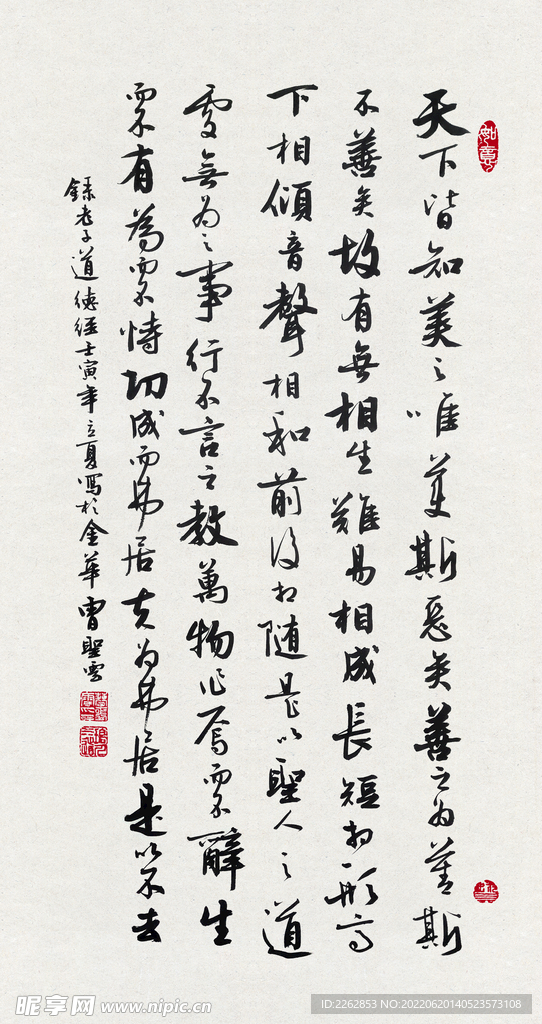 如意
天下皆知美之唯美斯惡矣善之为善斯
不善矣故有無相生難易相成長短相形高
下相傾音聲相和前後相随是以聖人之道
處無为之事行不言之教萬物作焉而不辭生
而不有為而不恃功成而弗居夫为弗居是以不去
錄老子道德經壬寅年立夏寫於金華曹聖雲
昵享网 www.nipic.cn
ID:2262853 NO:20220620140523573108